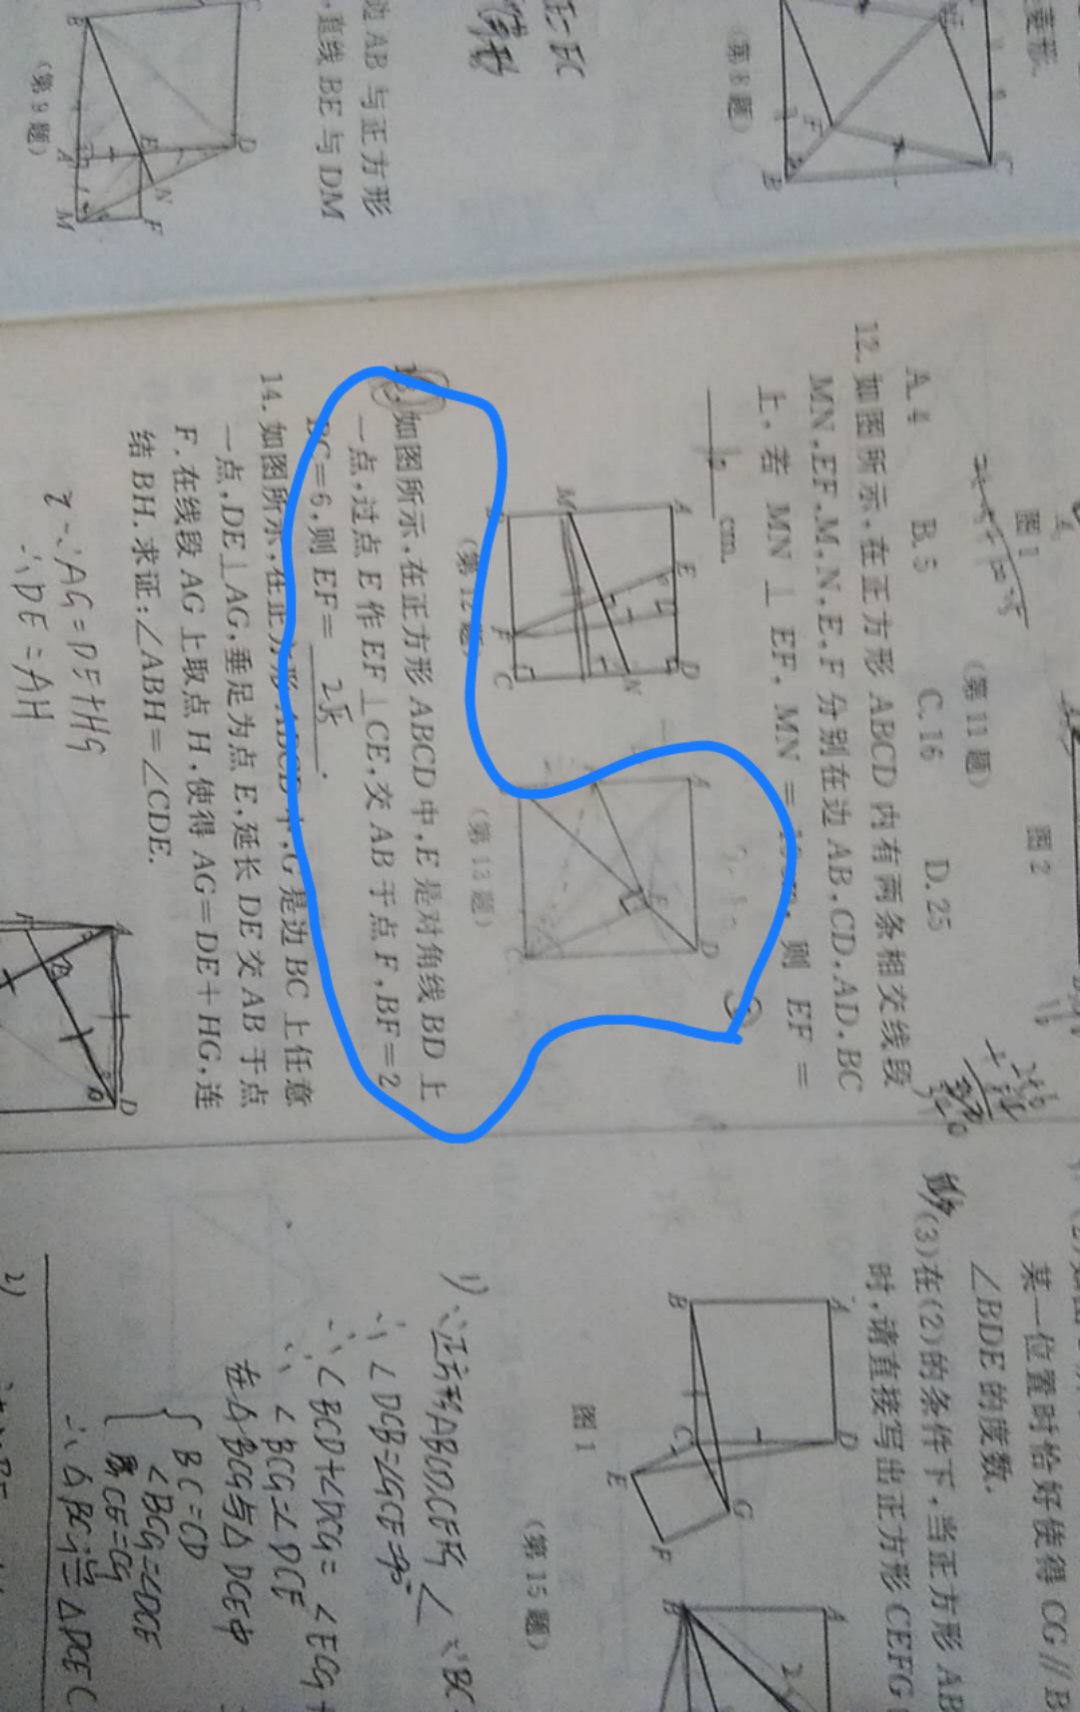 (第8题)
边 AB 与正方形
,直线 BE 与 DM
(第9题)
图1
图2
(第11题)
A.4 B.5 C.16 D.25
12. 如图所示,在正方形 ABCD 内有两条相交线段
MN,EF,M,N,E,F 分别在边 AB,CD,AD,BC
上.若 MN ⊥ EF, MN = 则 EF =
cm.
A E D
M N
F C
(第12题)
如图所示,在正方形 ABCD 中,E 是对角线 BD 上
一点,过点 E 作 EF⊥CE,交 AB 于点 F,BF=2
BC=6,则 EF=
A D
E
C
(第13题)
14. 如图所示,在正方形 ABCD 中,G 是边 BC 上任意
一点,DE⊥AG,垂足为点 E,延长 DE 交 AB 于点
F.在线段 AG 上取点 H,使得 AG=DE+HG,连
结 BH.求证:∠ABH=∠CDE.
∵AG=DE+HG
∴DE=AH
某一位置时恰好使得 CG∥B
∠BDE 的度数.
(3)在(2)的条件下,当正方形 AB
时,请直接写出正方形 CEFG
A D
B C
E G
F
图1
(第15题)
∴∠DCB=∠GCE=90°
∴∠BCD+∠DCG=∠ECG+
∴∠BCG=∠DCE
在△BCG与△DCE中
BC=CD
∠BCG=∠DCE
CE=CG
∴△BCG≌△DCE
2)